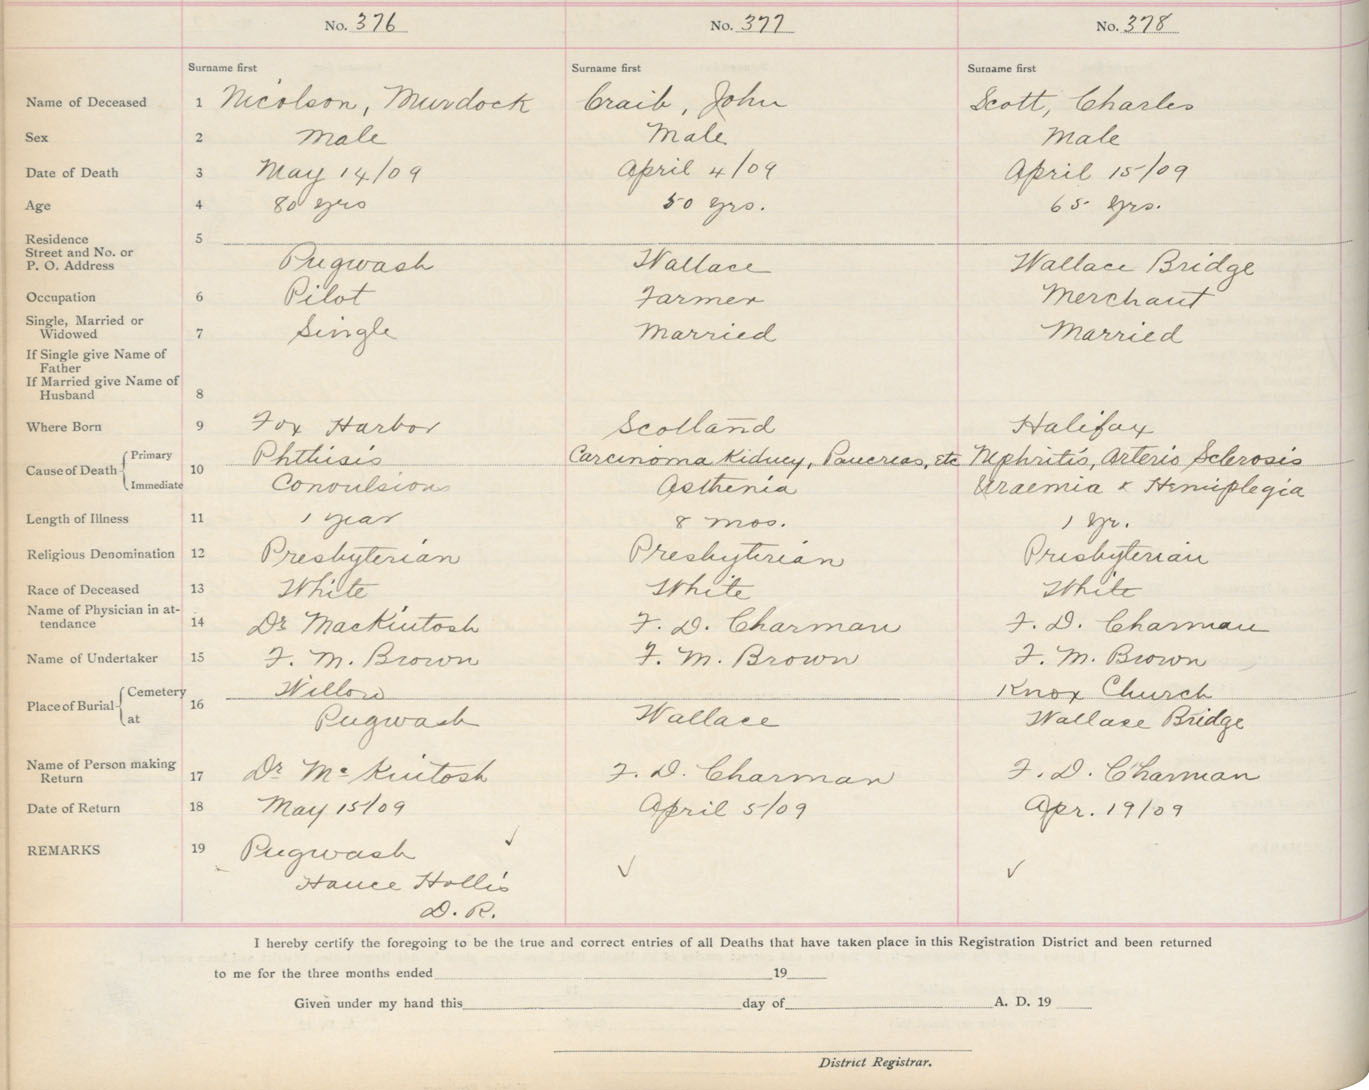 No. 376 No. 377 No. 378
Surname first Surname first Surname first
Name of Deceased 1 Nicolson, Murdock Craib, John Scott, Charles
Sex 2 Male Male Male
Date of Death 3 May 14/09 April 4/09 April 15/09
Age 4 80 yrs 50 yrs. 65 yrs.
Residence 5
Street and No. or
P. O. Address Pugwash Wallace Wallace Bridge
Occupation 6 Pilot Farmer Merchant
Single, Married or
Widowed 7 Single Married Married
If Single give Name of
Father
If Married give Name of
Husband 8
Where Born 9 Fox Harbor Scotland Halifax
Cause of Death Primary 10 Phthisis Carcinoma Kidney, Pancreas, etc Nephritis, Arterio Sclerosis
Immediate Convulsions Asthenia Uraemia & Hemiplegia
Length of Illness 11 1 year 8 mos. 1 yr.
Religious Denomination 12 Presbyterian Presbyterian Presbyterian
Race of Deceased 13 White White White
Name of Physician in at-
tendance 14 Dr MacKintosh F. D. Charman F. D. Charman
Name of Undertaker 15 F. M. Brown F. M. Brown F. M. Brown
Place of Burial Cemetery 16 Willow Knox Church
at Pugwash Wallace Wallace Bridge
Name of Person making
Return 17 Dr McKintosh F. D. Charman F. D. Charman
Date of Return 18 May 15/09 April 5/09 Apr. 19/09
REMARKS 19 Pugwash ✓ ✓ ✓
Hance Hollis
D. R.
I hereby certify the foregoing to be the true and correct entries of all Deaths that have taken place in this Registration District and been returned
to me for the three months ended 19
Given under my hand this day of A. D. 19
District Registrar.